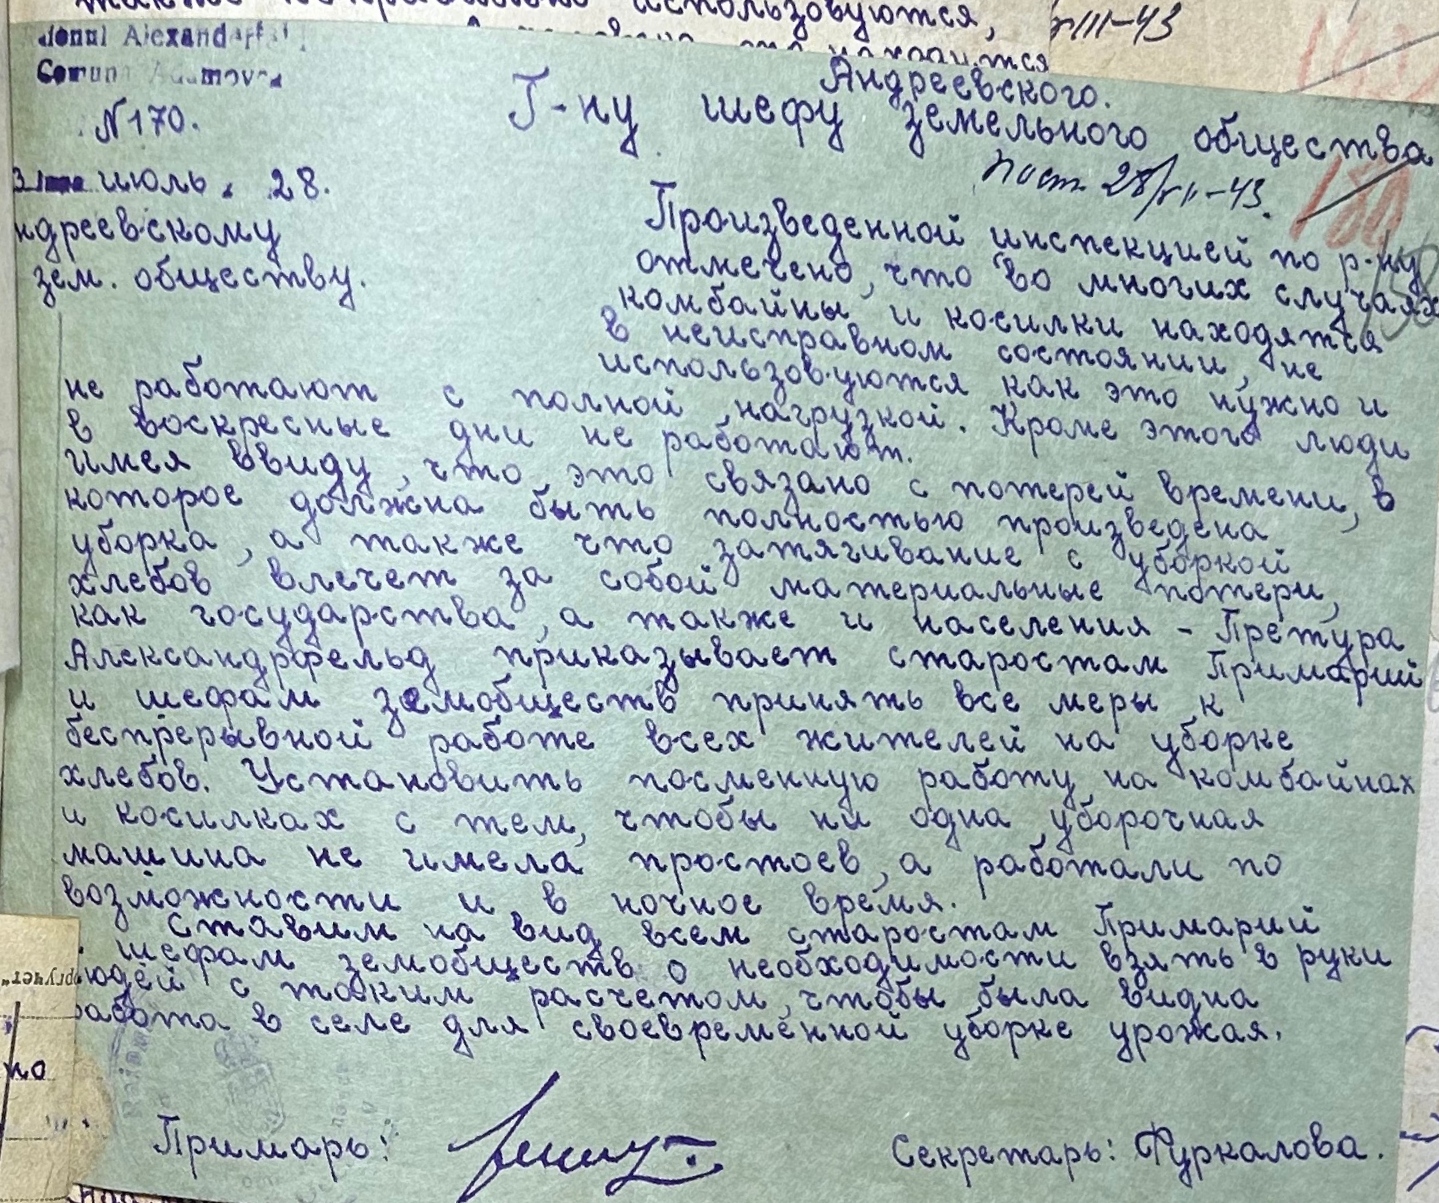 также использовуются,
III-43
Comuna Adamovca
№170.
Андреевского.
Г-ну шефу земельного общества
июль. 28.
ндреевскому
зем. обществу.
Произведенной инспекцией по р-ну
отмечено, что во многих случаях
комбайны и косилки находятся
в неисправном состоянии, не
использовуются как это нужно и
не работают с полной нагрузкой. Кроме этого люди
в воскресные дни не работают.
имея ввиду, что это связано с потерей времени, в
которое должна быть полностью произведена
уборка, а также что затягивание с уборкой
хлебов влечет за собой материальные потери,
как государства, а также и населения - Претура
Александрфельд приказывает старостам Примарий
и шефам земобществ принять все меры к
беспрерывной работе всех жителей на уборке
хлебов. Установить посменную работу на комбайнах
и косилках с тем, чтобы ни одна уборочная
машина не имела простоев, а работали по
возможности и в ночное время.
Ставим на вид всем старостам Примарий
шефам земобществ о необходимости взять в руки
юдей с таким расчетом, чтобы была видна
работа в селе для своевременной уборке урожая.
но
Примарь:
Секретарь: Фуркалова.